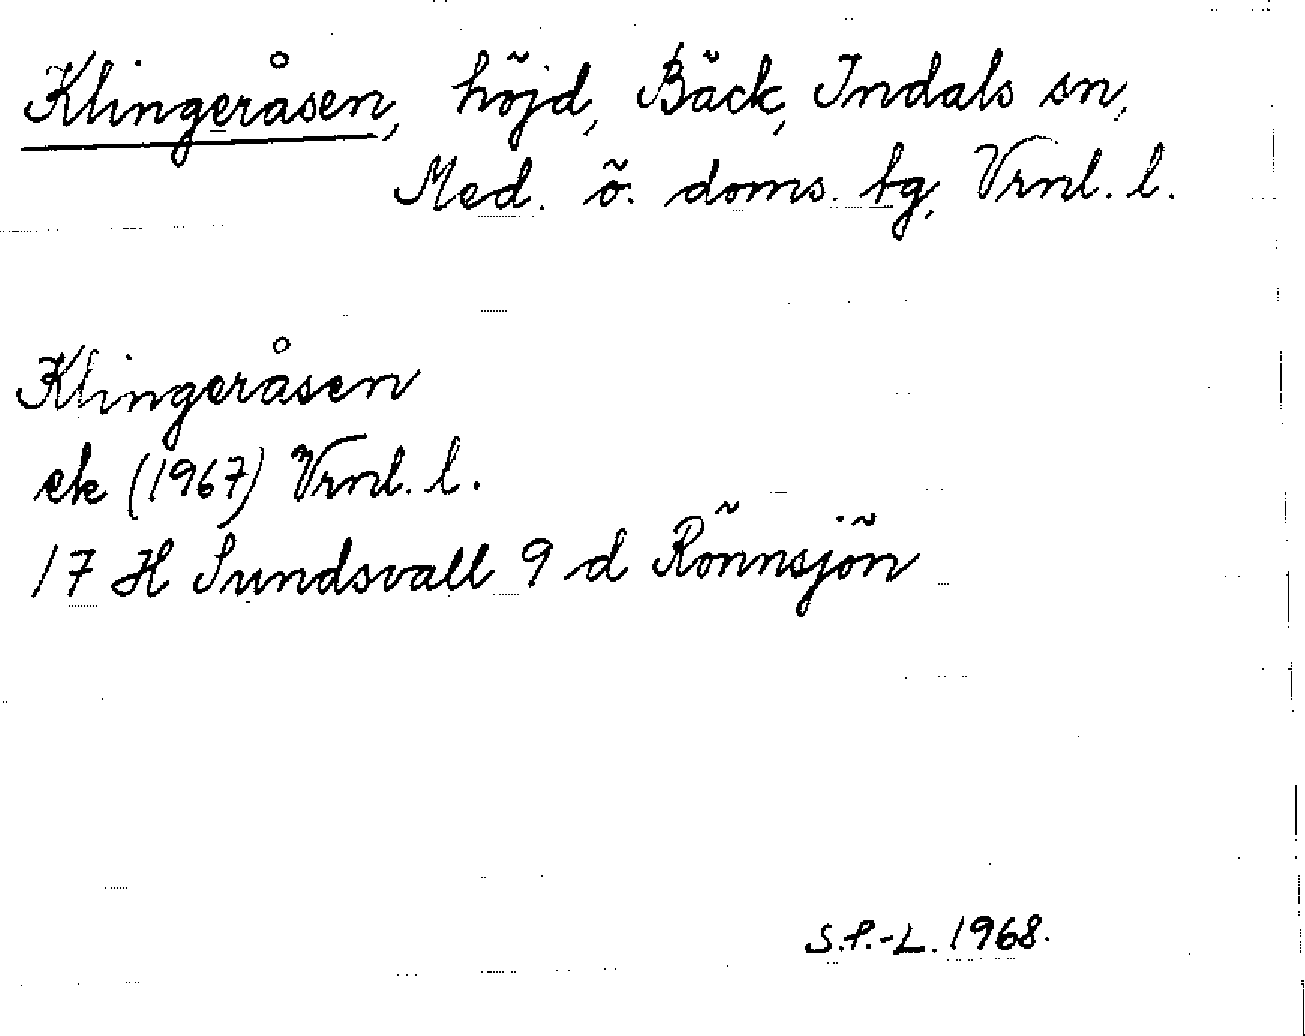 Klingeråsen, höjd, Bäck, Indals sn,
Med. ö. doms. tg, Vrnl. l.
Klingeråsen
ek (1967) Vrnl. l.
17 H Sundsvall 9 d Rönnsjön
S.P.-L. 1968.